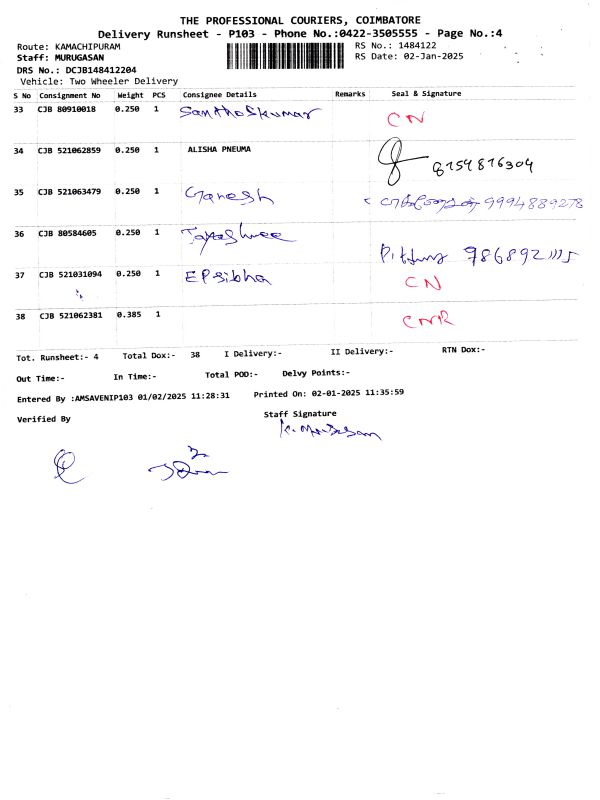 THE PROFESSIONAL COURIERS, COIMBATORE
Delivery Runsheet - P103 - Phone No.:0422-3505555 - Page No.:4
Route: KAMACHIPURAM RS No.: 1484122
Staff: MURUGASAN RS Date: 02-Jan-2025
DRS No.: DCJB148412204
Vehicle: Two Wheeler Delivery
S No Consignment No Weight PCS Consignee Details Remarks Seal & Signature
33 CJB 80910018 0.250 1 Santhoskumar CN
34 CJB 521062859 0.250 1 ALISHA PNEUMA 8754876304
35 CJB 521063479 0.250 1 Ganesh 9994889278
36 CJB 80584605 0.250 1 Jayashree
37 CJB 521031094 0.250 1 EPsibha CN
38 CJB 521062381 0.385 1 CNR
Tot. Runsheet:- 4 Total Dox:- 38 I Delivery:- II Delivery:- RTN Dox:-
Out Time:- In Time:- Total POD:- Delvy Points:-
Entered By :AMSAVENIP103 01/02/2025 11:28:31 Printed On: 02-01-2025 11:35:59
Verified By Staff Signature